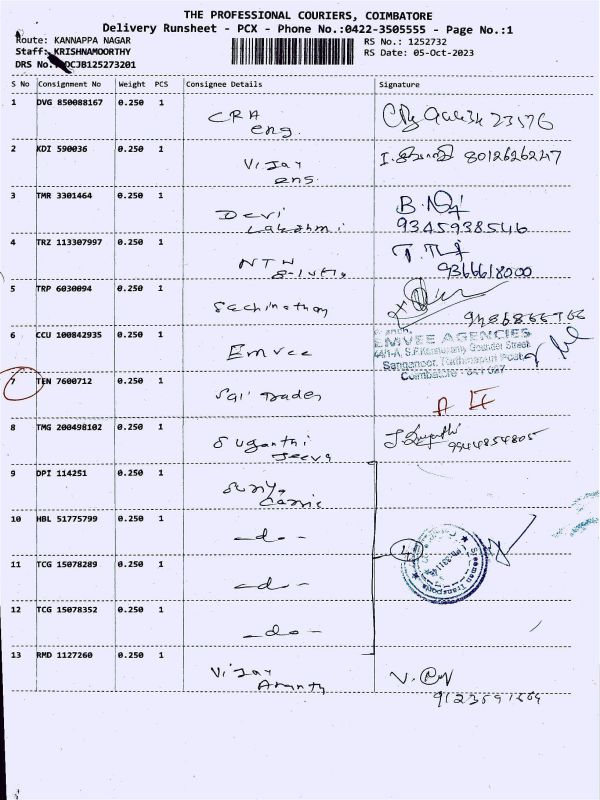 THE PROFESSIONAL COURIERS, COIMBATORE
Delivery Runsheet - PCX - Phone No.:0422-3505555 - Page No.:1
Route: KANNAPPA NAGAR
RS No.: 1252732
Staff: KRISHNAMOORTHY
RS Date: 05-Oct-2023
DRS No.: DCJB125273201
S No Consignment No Weight PCS Consignee Details Signature
1 DVG 850088167 0.250 1 CRA
eng.
23576
2 KDI 590036 0.250 1 Vijay
ens.
8012626247
3 TMR 3301464 0.250 1 Devi
Lakshmi
B.
9345938546
4 TRZ 113307997 0.250 1 NTW
9366618000
5 TRP 6030094 0.250 1
6 CCU 100842935 0.250 1 Emvee
EMVEE AGENCIES
44/1-A, S.F. Gounder Street
Post,
Coimbatore - 641 027
7 TEN 7600712 0.250 1 Sai Trader
8 TMG 200498102 0.250 1 Suganthi
Jeeva
9944854805
9 DPI 114251 0.250 1
10 HBL 51775799 0.250 1 -do-
4
Transports
11 TCG 15078289 0.250 1 -do-
12 TCG 15078352 0.250 1 -do-
13 RMD 1127260 0.250 1 Vijay
Ananth
V.